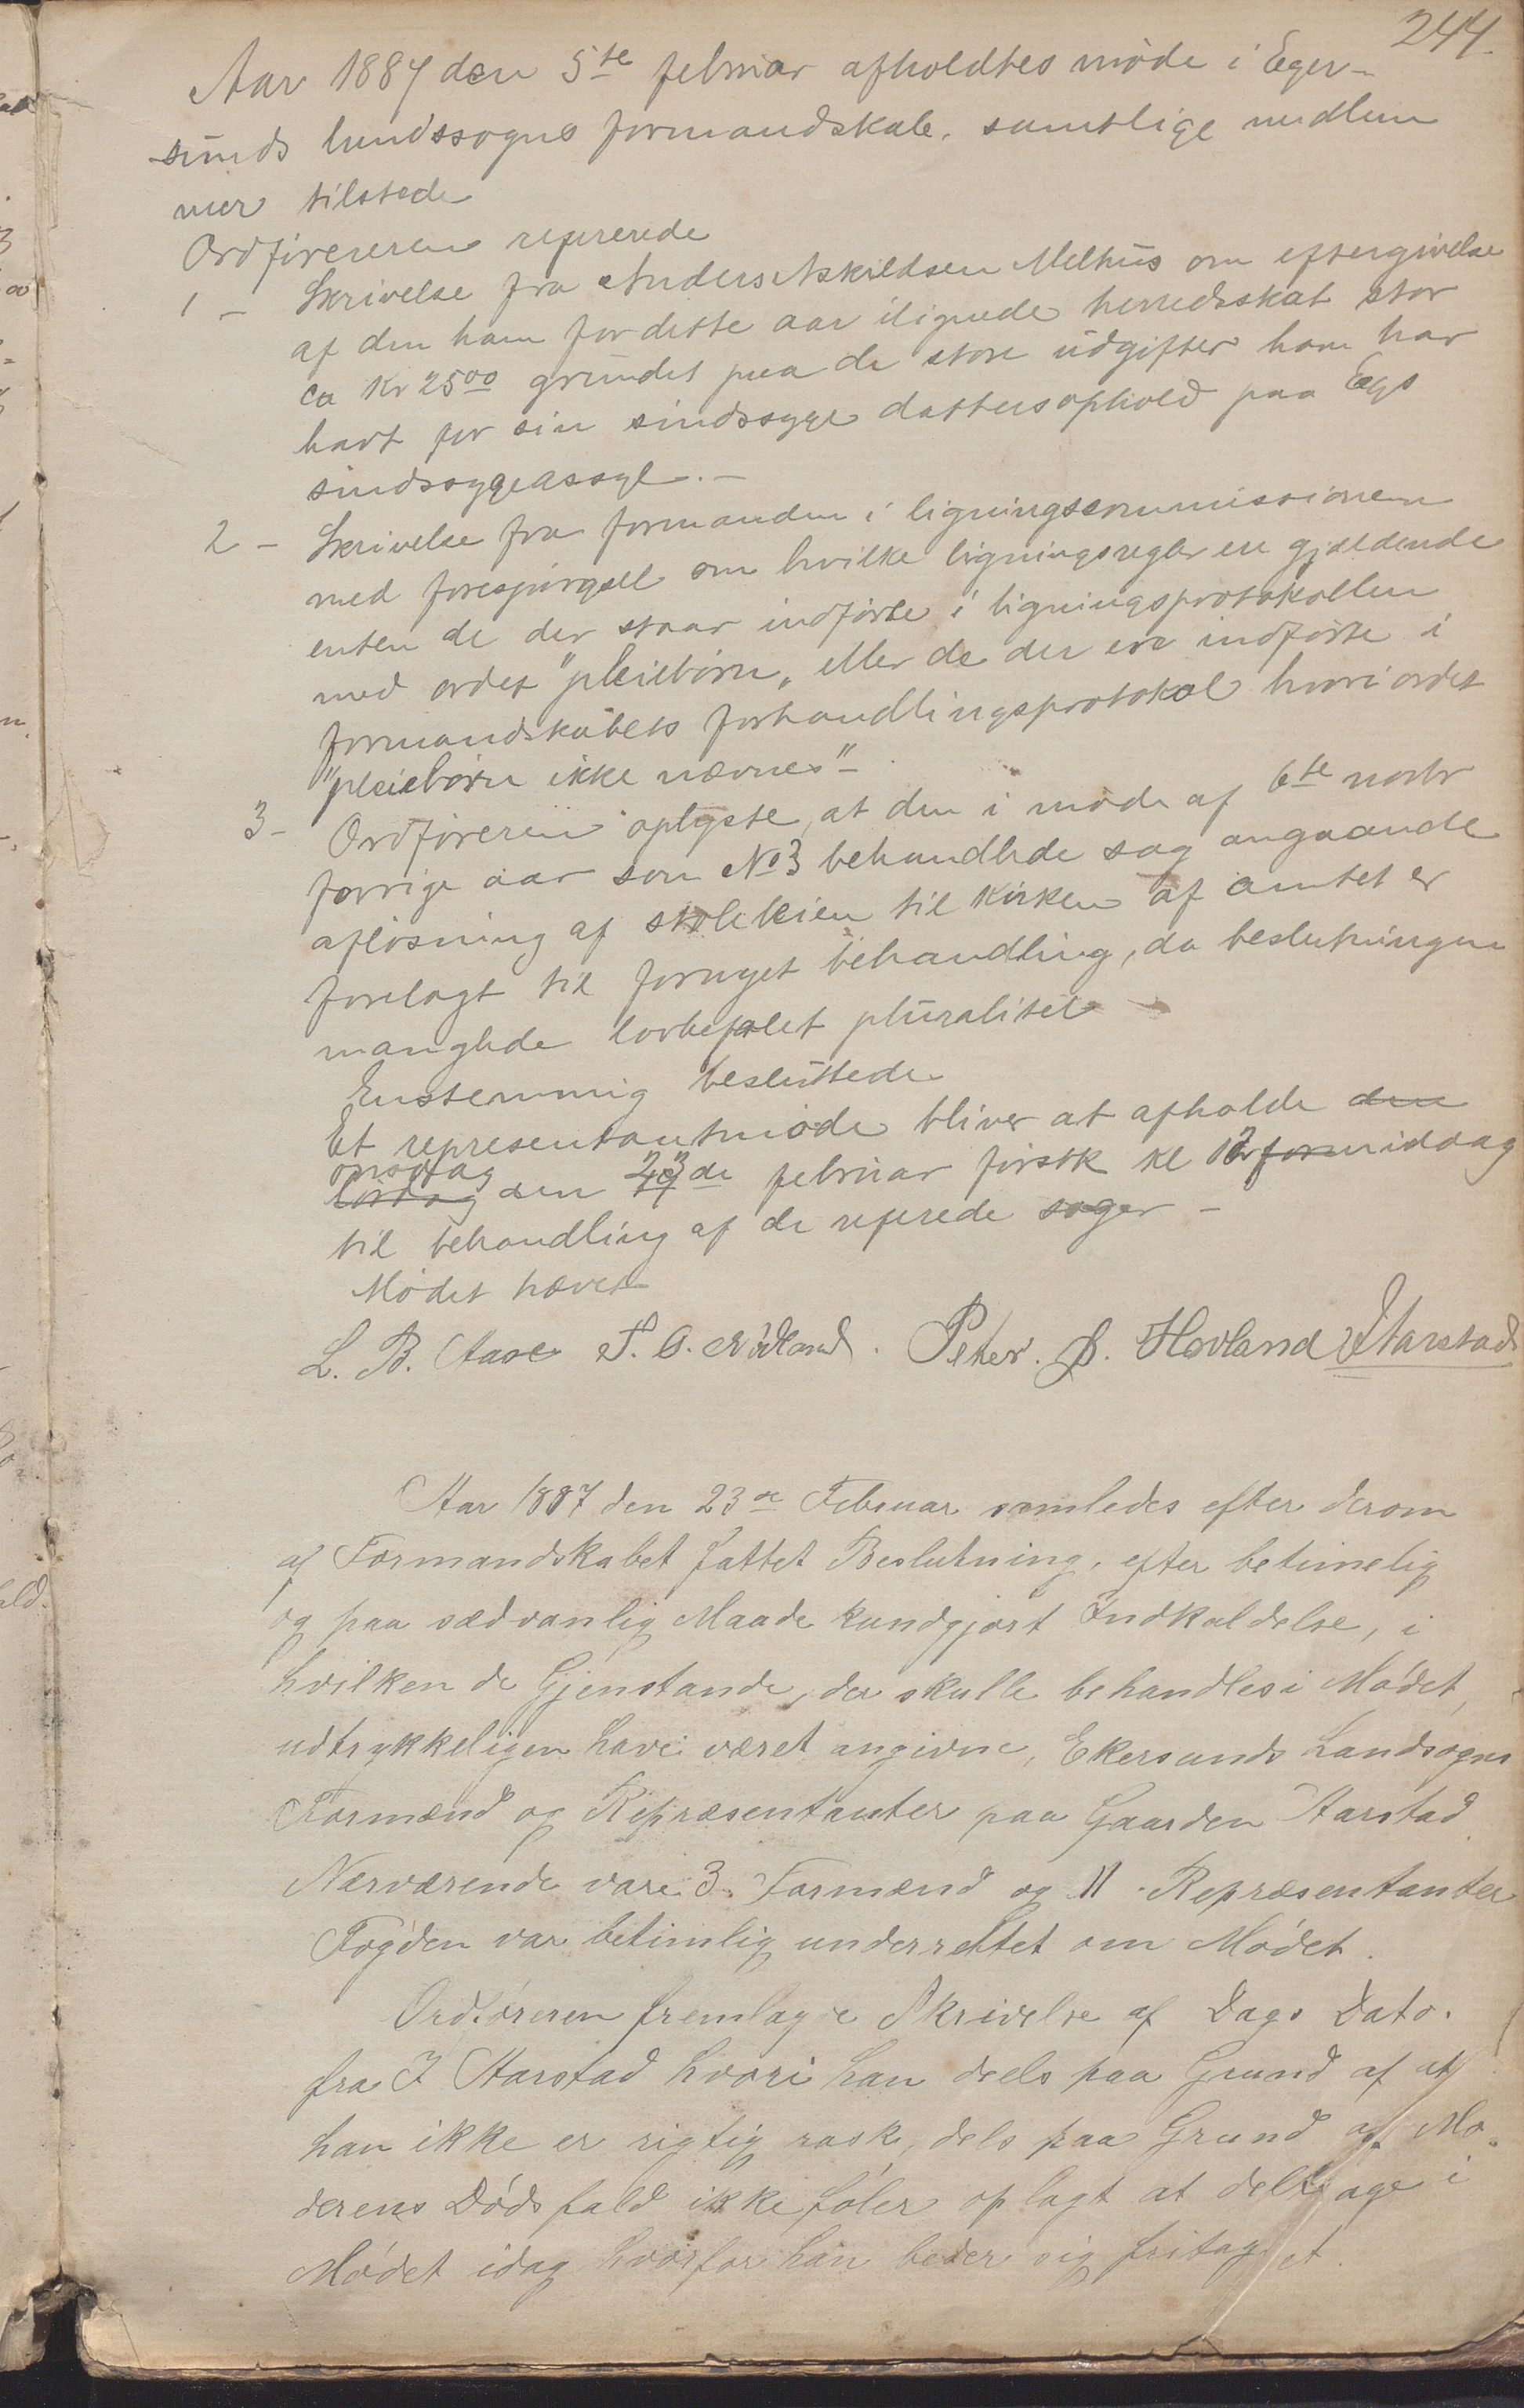 244.
Aar 1887 den 5te februar afholdtes møde i Eger-
sunds landssogns formandskab. samtlige medlem
mer tilstede
Ordføreren refererede
1 - Skrivelse fra Anders Askildsen Melhus om eftergivelse
af den ham for dette aar ilignede herredsskat stor
ca Kr 25 00 grundet paa de store udgifter han har
havt for sin sindssyge datters ophold paa Egs
sindssygeassyl. -
2 - Skrivelse fra formanden i ligningscommissionen
med forespørgsel om hvilke ligningsregler ere gjældende
enten de der staar indførte i ligningsprotokollen
med ordet "pleiebørn" eller de der ere indførte i
formandskabets forhandlingsprotokol hvori ordet
"pleiebørn ikke nævnes" -
3 - Ordføreren oplyste, at den i møde af 6te novbr
forrige aar som No 3 behandlede sag angaaende
afløsning af stolleien til kirken af amtet er
forelagt til fornyet behandling, da beslutningen
manglede lovbefalet pluralitet
Enstemmig besluttede
Et representantmøde bliver at afholde den
onsdag
lørdag den 23de februar førstk kl 12 formiddag
til behandling af de referede sager -
Mødet hævet
L. B. Aase T. O. Mødland. Peter. S. Hovland J Aarstad
Aar 1887 den 23de Februar samledes efter derom
af Formandskabet fattet Beslutning, efter betimelig
og paa sædvanlig Maade kundgjort Indkaldelse, i
hvilken de Gjenstande, der skulle behandles i Mødet,
udtrykkeligen have været angivne, Ekersunds Landsogns
Formænd og Repræsentanter paa Gaarden Aarstad
Nærværende vare 3 Formænd og 11 Repræsentanter
Fogden var betimlig underrettet om Mødet.
Ordføreren fremlagde Skrivelse af Dags Dato.
fra J Aarstad hvori han deels paa Grund af at
han ikke er rigtig rask, dels paa Grund af Mo-
derens Dødsfald ikke føler oplagt at deltage i
Mødet idag hvorfor han beder sig fritaget.